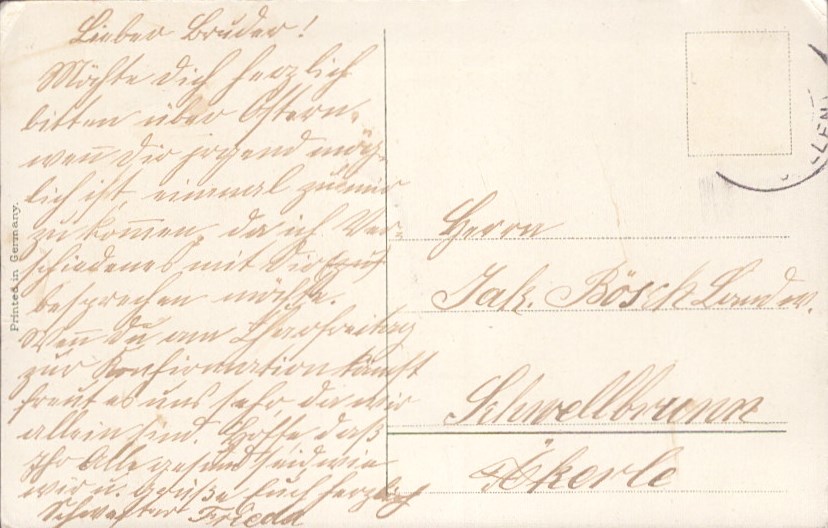 Lieber Bruder!
Möchte Dich herzlich
bitten über Ostern,
wenn Dir irgend mög-
lich ist, einmal zu mir
zu kommen, da ich Ver-
schiedenes mit Dir
besprechen möchte.
Wenn Du am Charfreitag
zur Konfirmation kämst
freut es uns sehr, da wir
allein sind. Hoffe daß
Ihr Alle gesund seid wie
wir u. grüße Euch herzlich
Schwester Frieda
Printed in Germany.
Herrn
Jak. Bösch Landw.
Schwellbrunn